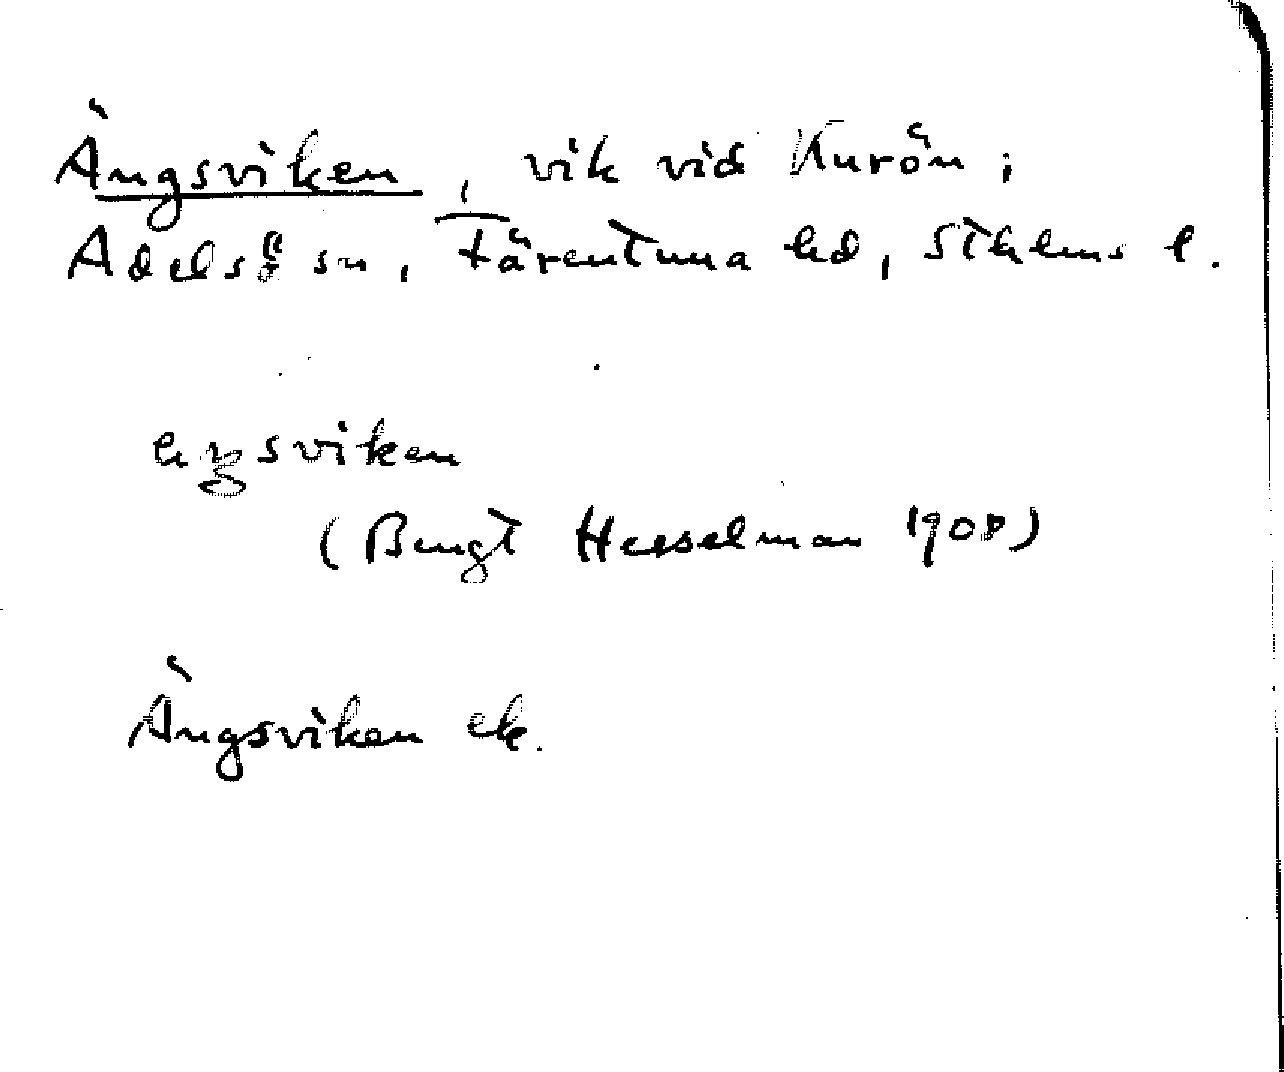 Ängsviken, vik vid Kurön i
Adelsö sn, Färentuna hd, Sthlms l.
eŋsviken
(Bengt Hesselman 1908)
Ängsviken ek.